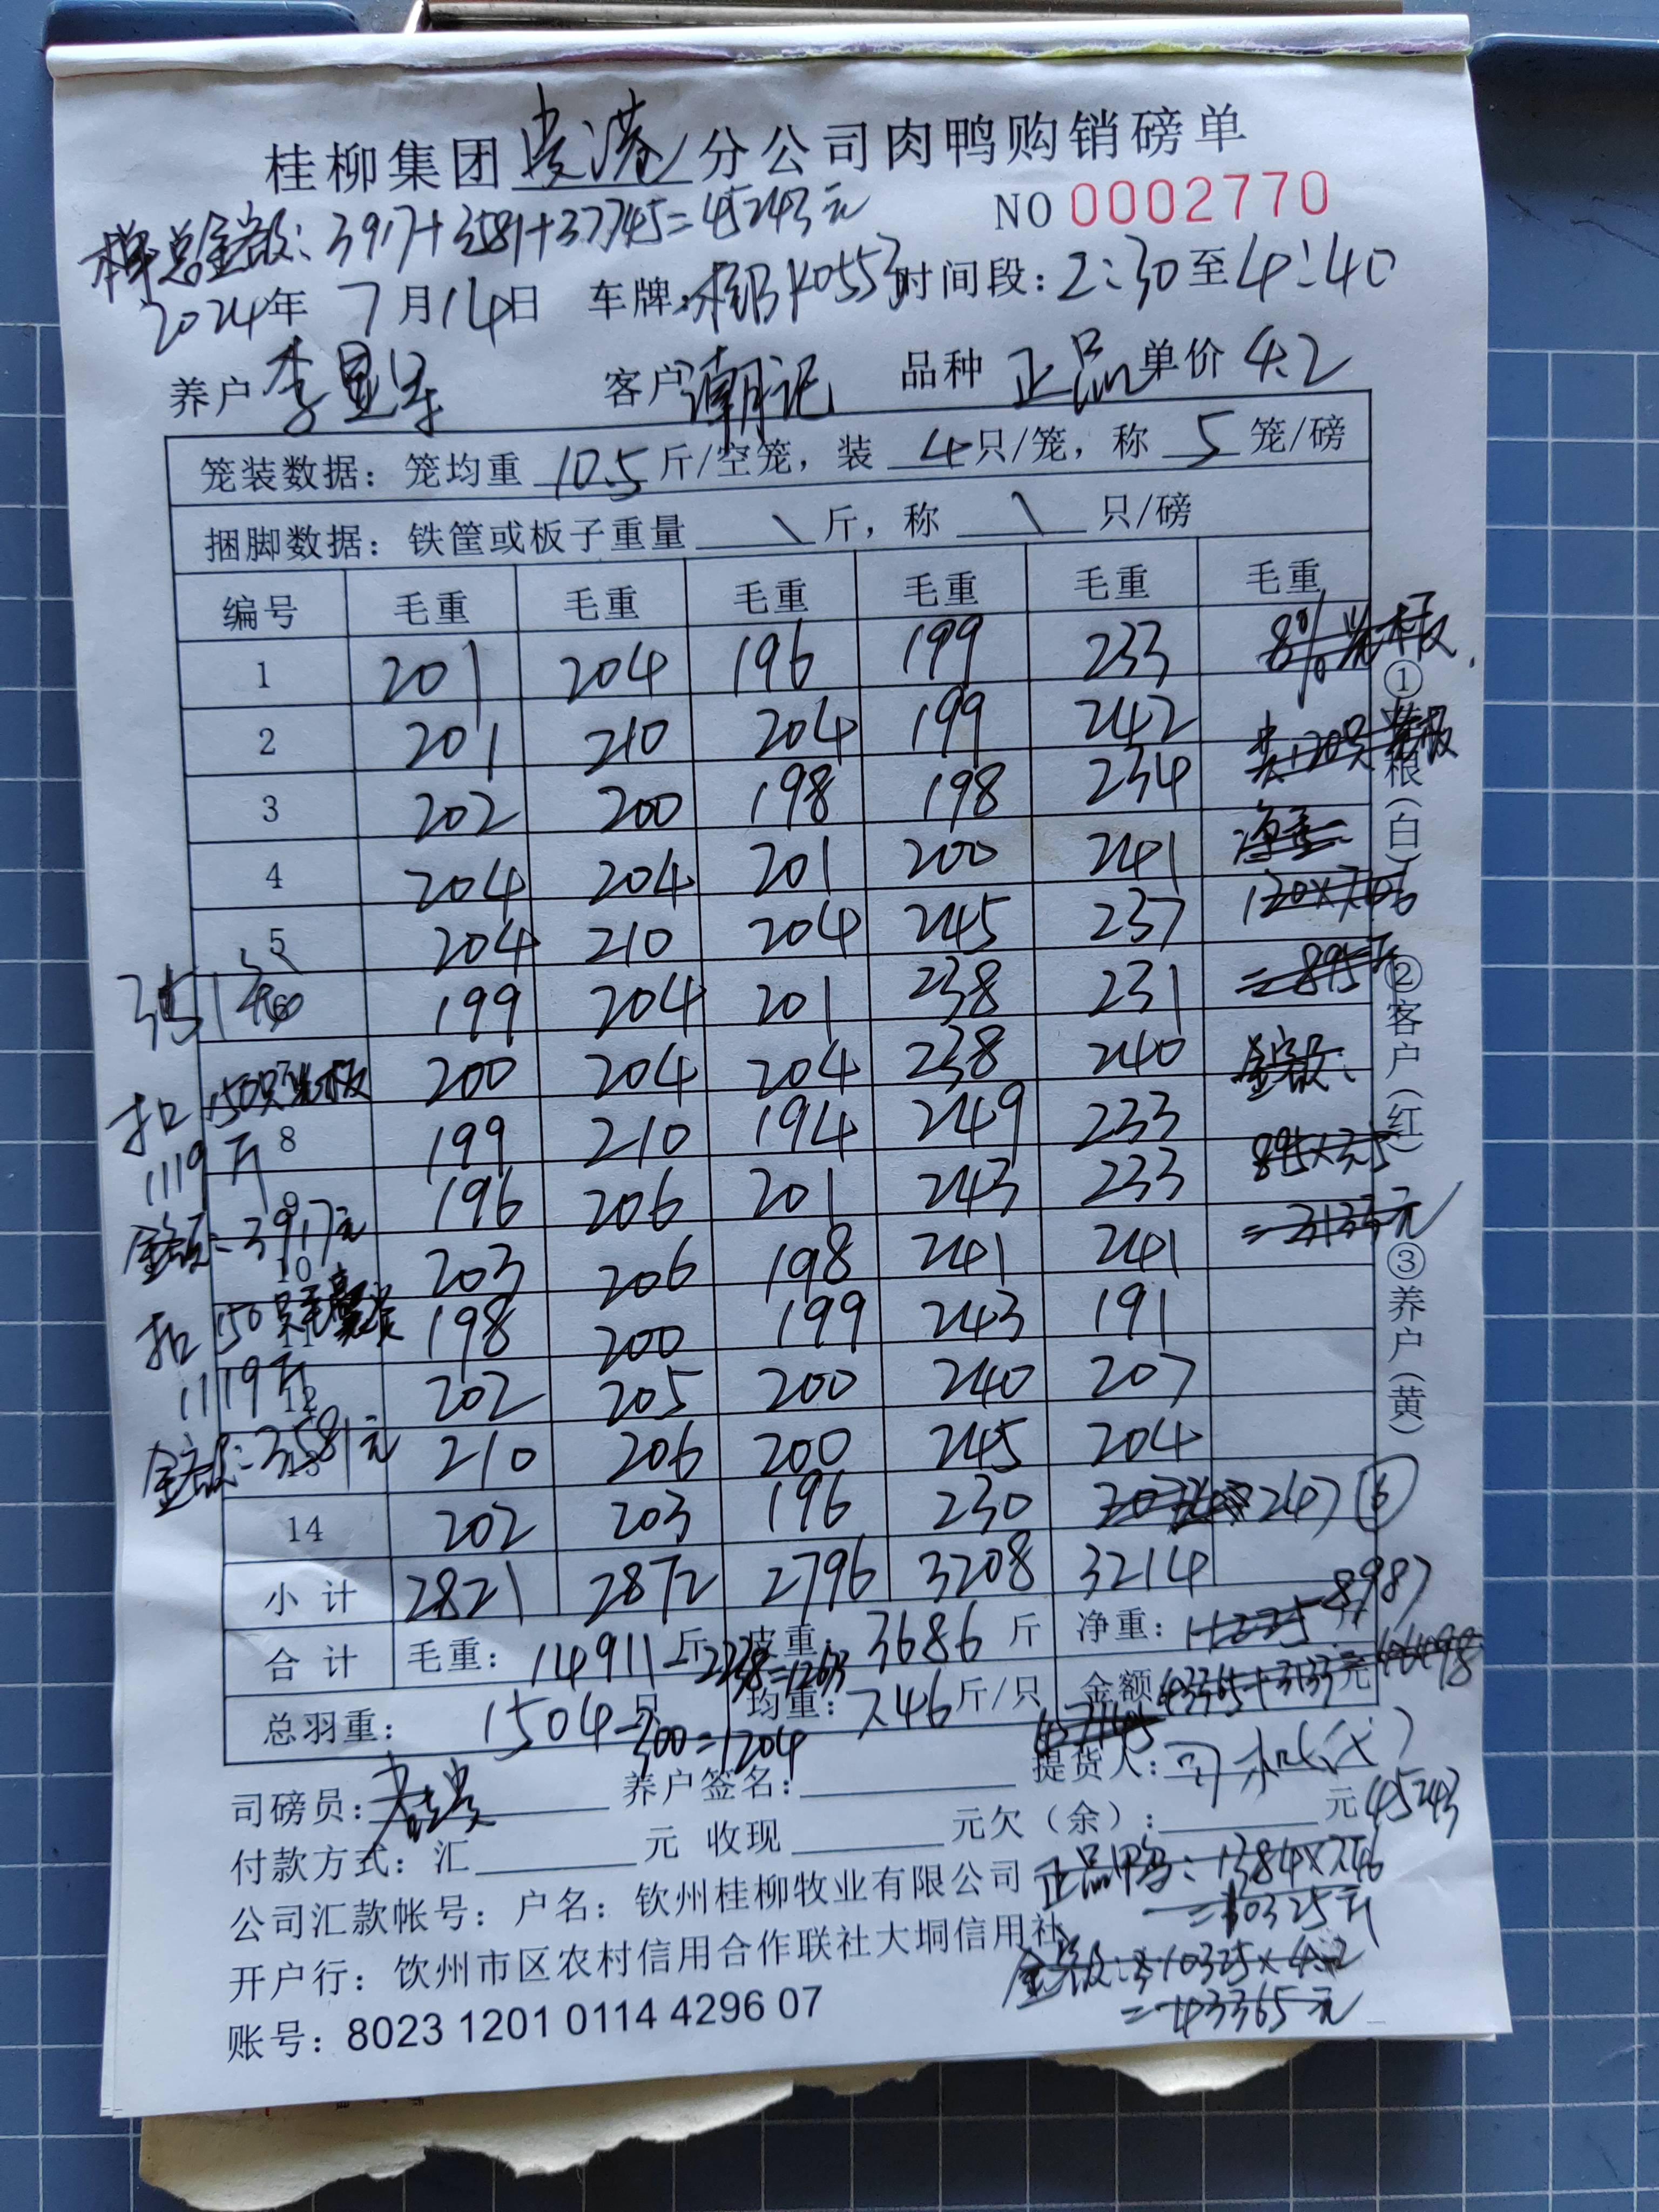 桂柳集团贵港分公司肉鸭购销磅单
NO 0002770
总金额:3917+3581+37745=45243元
2024年 7月14日 车牌:桂BK0553 时间段:2:30至4:40
养户 李显 客户 潮记 品种 正品 单价 4.2
笼装数据:笼均重 10.5 斤/空笼,装 4 只/笼,称 5 笼/磅
捆脚数据:铁筐或板子重量 \ 斤,称 \ 只/磅
编号 毛重 毛重 毛重 毛重 毛重 毛重
1 201 204 196 199 233 8%光板
2 201 210 204 199 242 共120只光板
3 202 200 198 198 234 净重
4 204 204 201 200 241 120×7.46
5 204 210 204 245 237 =895斤
351 6 199 204 201 238 231
扣150只光板 200 204 204 238 240 金额:
1119斤 8 199 210 194 249 233 895×3.5
9 196 206 201 243 233 =3133元
金额:3917元
10 203 206 198 241 241
扣150只 11 198 200 199 243 191
1119斤 12 202 205 200 240 207
金额:3581元 13 210 206 200 245 204
14 202 203 196 230 247 ⑥
小计 2821 2872 2796 3208 3214
合计 毛重:14911斤 皮重:3686斤 净重:11225斤 8987
-2238=12673
总羽重: 1504只 均重:7.46斤/只 金额 43365+3133元 46498
-300=1204
37745
司磅员: 养户签名: 提货人:司机(代)
付款方式:汇 元 收现 元欠(余): 元 45243
公司汇款帐号:户名:钦州桂柳牧业有限公司
正品鸭:1384×7.46
=10325斤
开户行:钦州市区农村信用合作联社大垌信用社
金额:10325×4.2
=43365元
账号:8023 1201 0114 4296 07
①存根(白)②客户(红)③养户(黄)